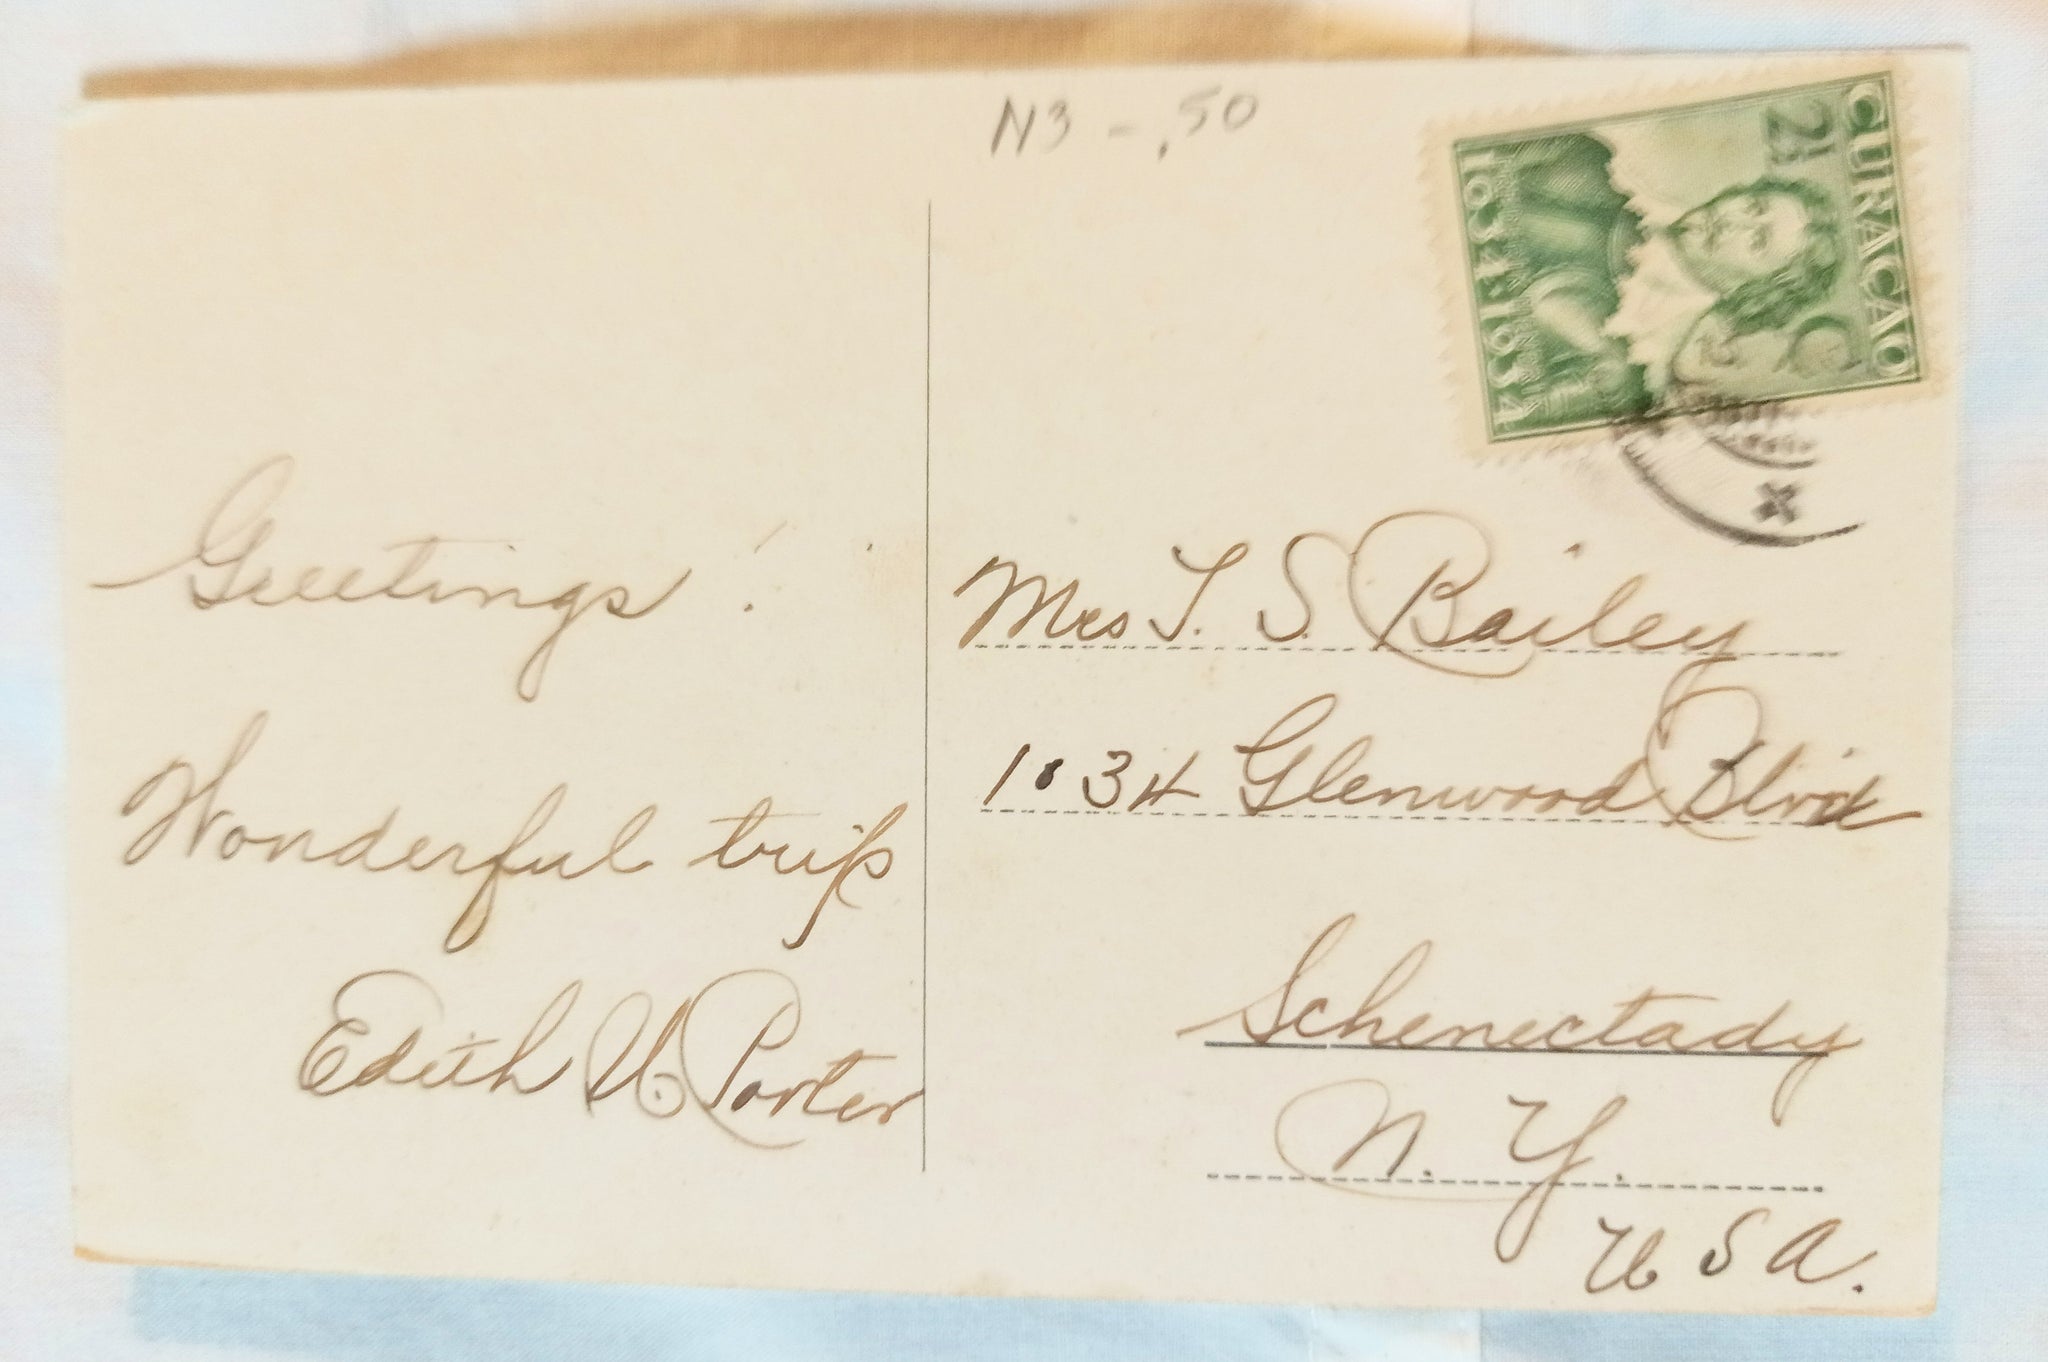 N3 - .50
CURAÇAO
2½ C
1634 · 1934
Greetings!
Wonderful trip
Edith U Porter
Mrs T. S. Bailey
1034 Glenwood Blvd
Schenectady
N. Y.
U S A.